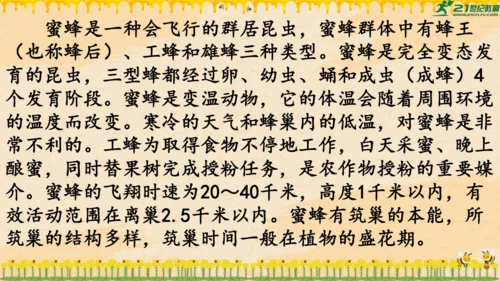 21世纪教育
蜜蜂是一种会飞行的群居昆虫，蜜蜂群体中有蜂王
（也称蜂后）、工蜂和雄蜂三种类型。蜜蜂是完全变态发
育的昆虫，三型蜂都经过卵、幼虫、蛹和成虫（成蜂）4
个发育阶段。蜜蜂是变温动物，它的体温会随着周围环境
的温度而改变。寒冷的天气和蜂巢内的低温，对蜜蜂是非
常不利的。工蜂为取得食物不停地工作，白天采蜜、晚上
酿蜜，同时替果树完成授粉任务，是农作物授粉的重要媒
介。蜜蜂的飞翔时速为20～40千米，高度1千米以内，有
效活动范围在离巢2.5千米以内。蜜蜂有筑巢的本能，所
筑巢的结构多样，筑巢时间一般在植物的盛花期。